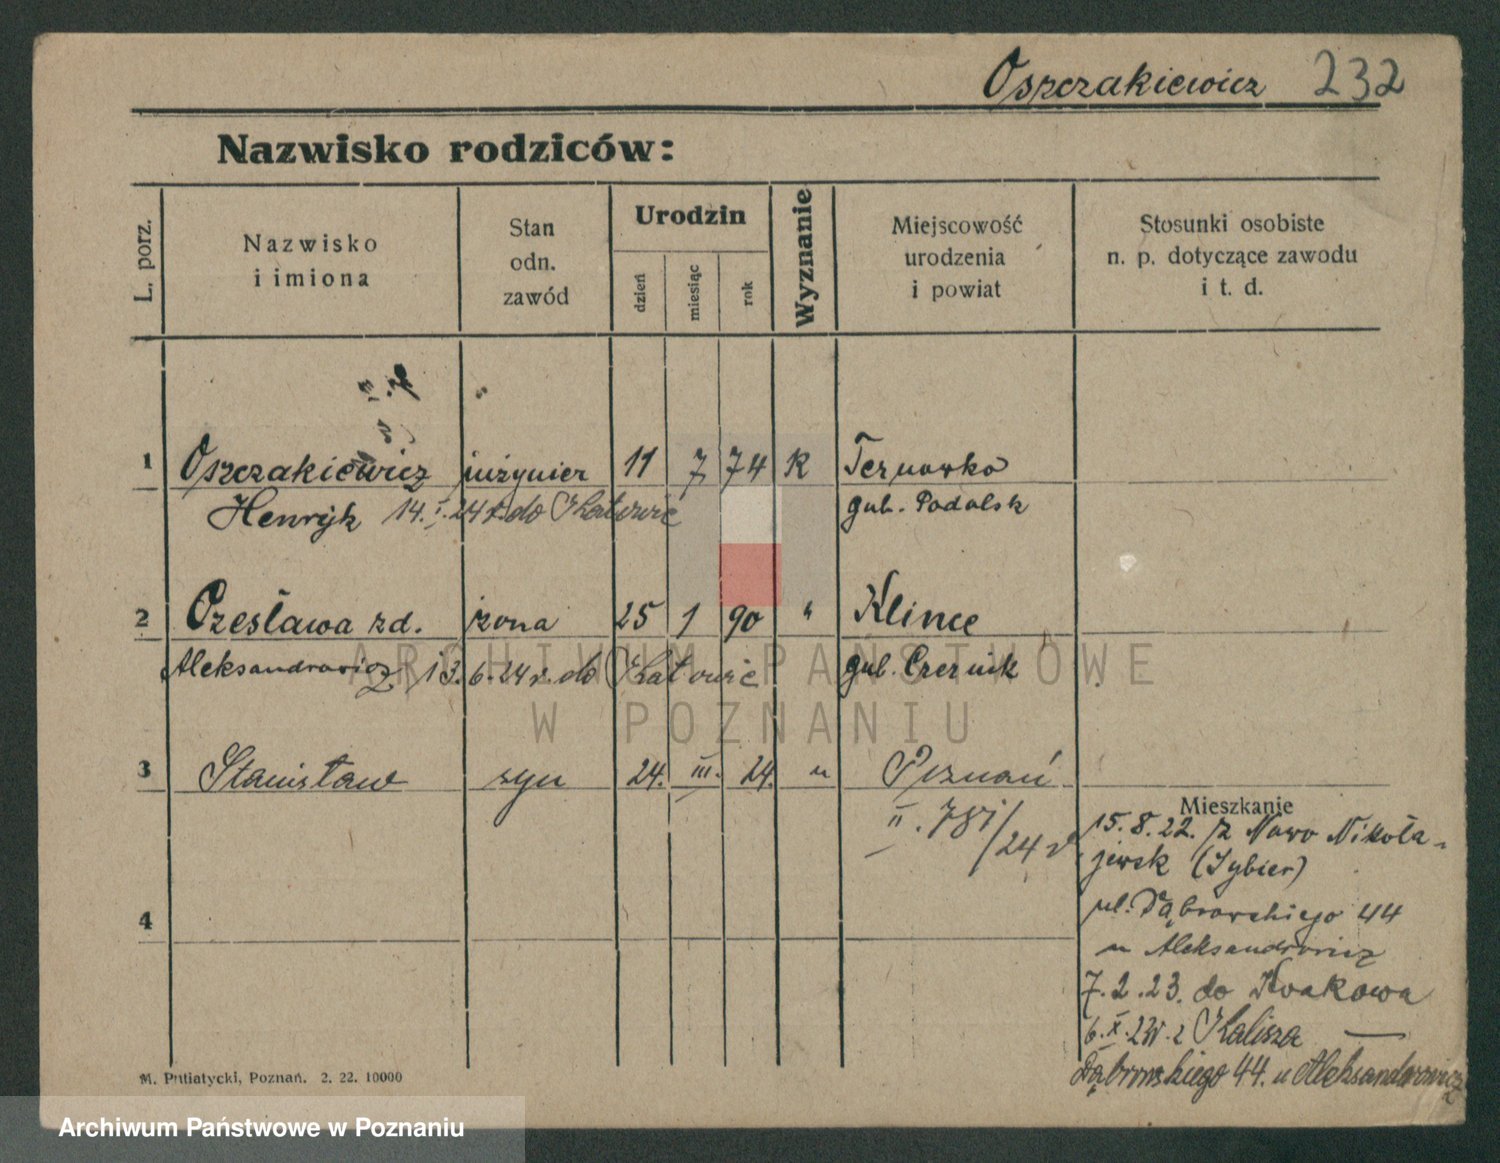 Oszczakiewicz 232
Nazwisko rodziców:
L. porz.
Nazwisko
i imiona
Stan
odn.
zawód
Urodzin
dzień
miesiąc
rok
Wyznanie
Miejscowość
urodzenia
i powiat
Stosunki osobiste
n. p. dotyczące zawodu
i t. d.
1 Oszczakiewicz inżynier 11 7 74 K Ternowka
Henryk 14.I.24 r. do Katowic gub. Podolsk
2 Czesława zd. żona 25 1 90 " Klince
Aleksandrowicz 13.6.24 r. do Katowic gub. Czernik
3 Stanisław syn 24. III. 24. " Poznań
II. 781/24 r
4
Mieszkanie
15.8.22. z Nowo Nikoła-
jewsk (Sybier)
ul. Dąbrowskiego 44
u Aleksandrowicz
7.2.23. do Krakowa
6.X.23 r. z Kalisza —
Dąbrowskiego 44. u Aleksandrowicz
M. Putiatycki, Poznań. 2. 22. 10000
ARCHIWUM PAŃSTWOWE
W POZNANIU
Archiwum Państwowe w Poznaniu